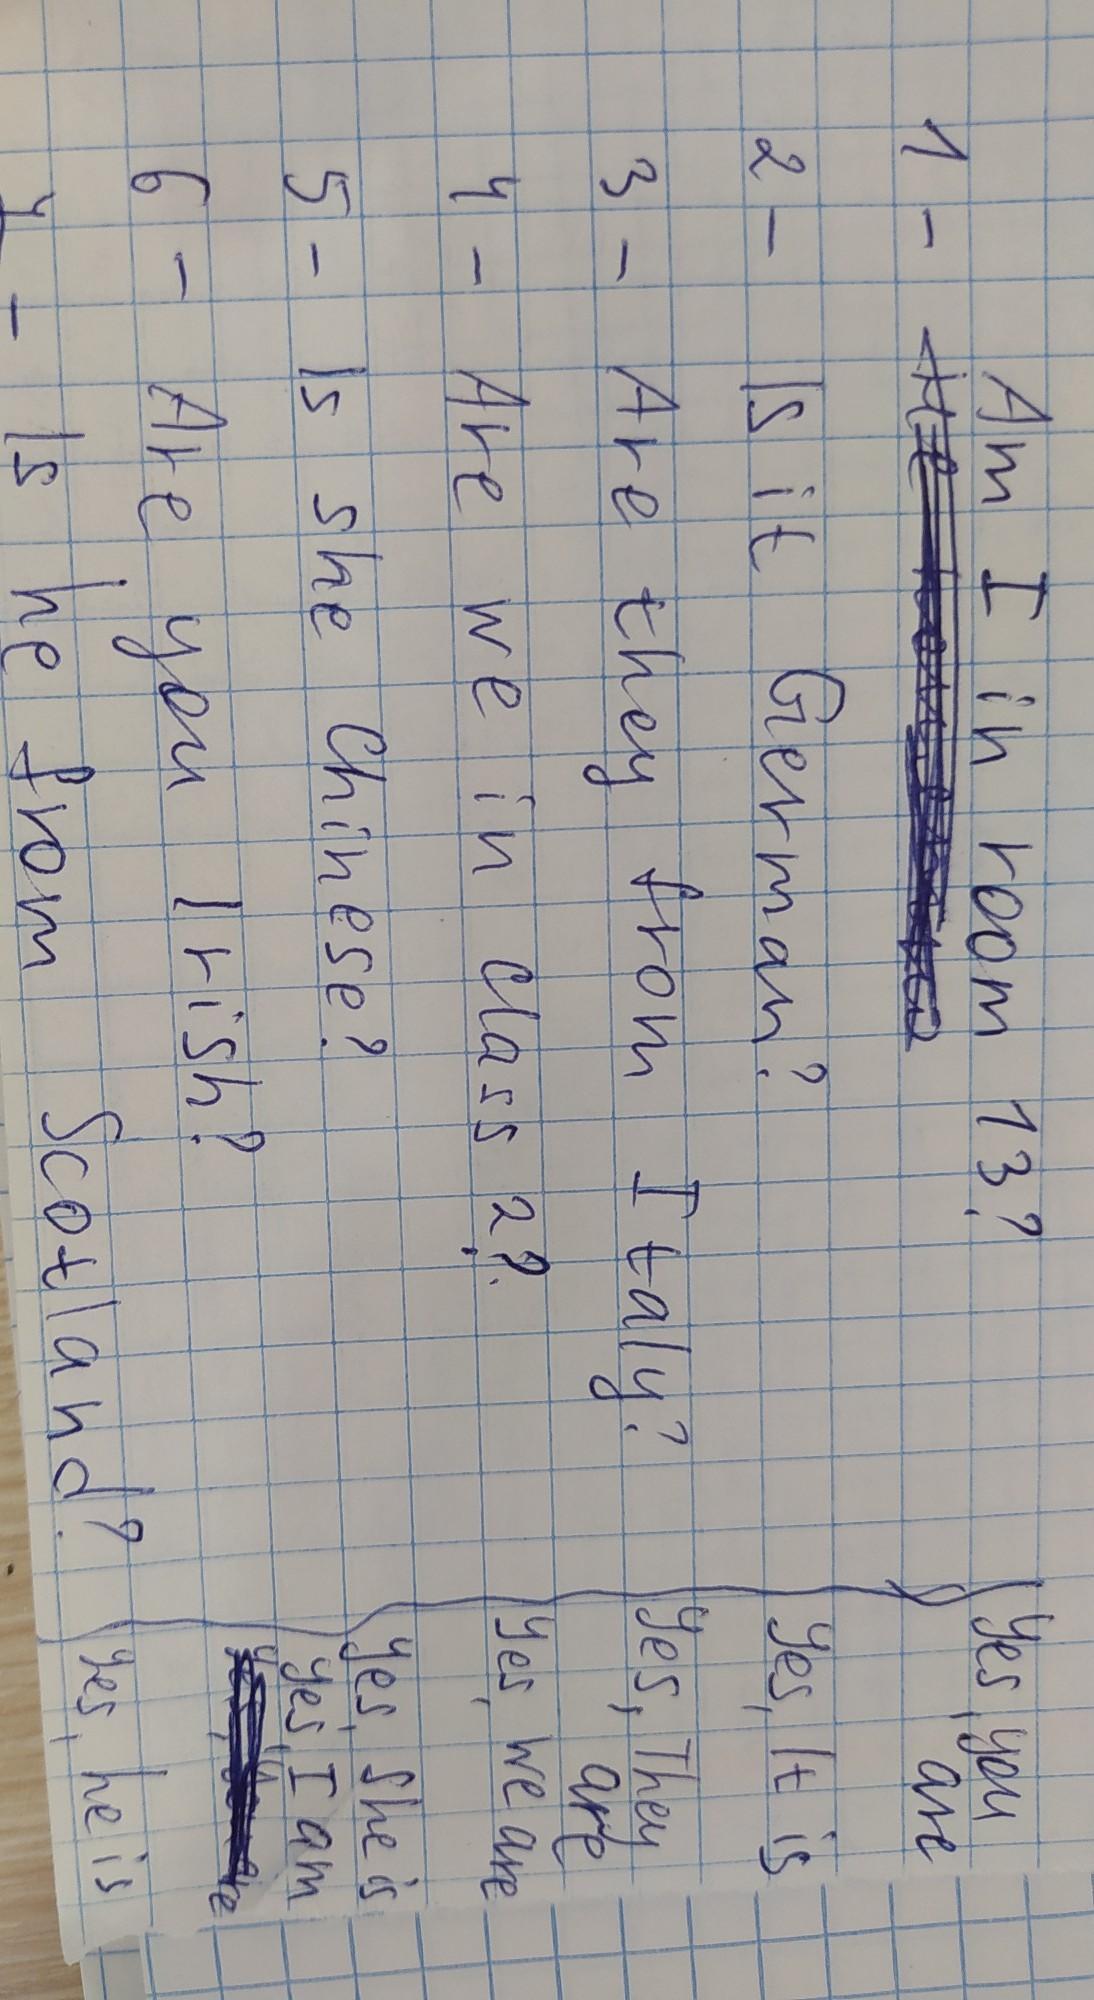 1 - Am I in room 13?
Yes, you
are
2 - Is it German?
Yes, It is
3 - Are they from Italy?
Yes, They
are
4 - Are we in class 2?
Yes, we are
5 - Is she Chinese?
Yes, She is
6 - Are you Irish?
Yes, I am
7 - Is he from Scotland?
Yes, he is